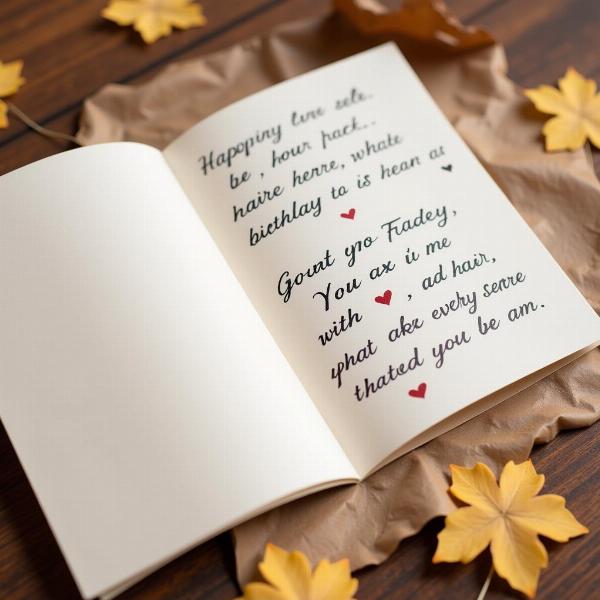 Hapopiny lure sele.
be , hour pack..
haire herre, whate
bicthlay to is hean at
Gount yno Fradey,
You ax ii me
with , ad hair,
phat akz every senre
thated you be am.